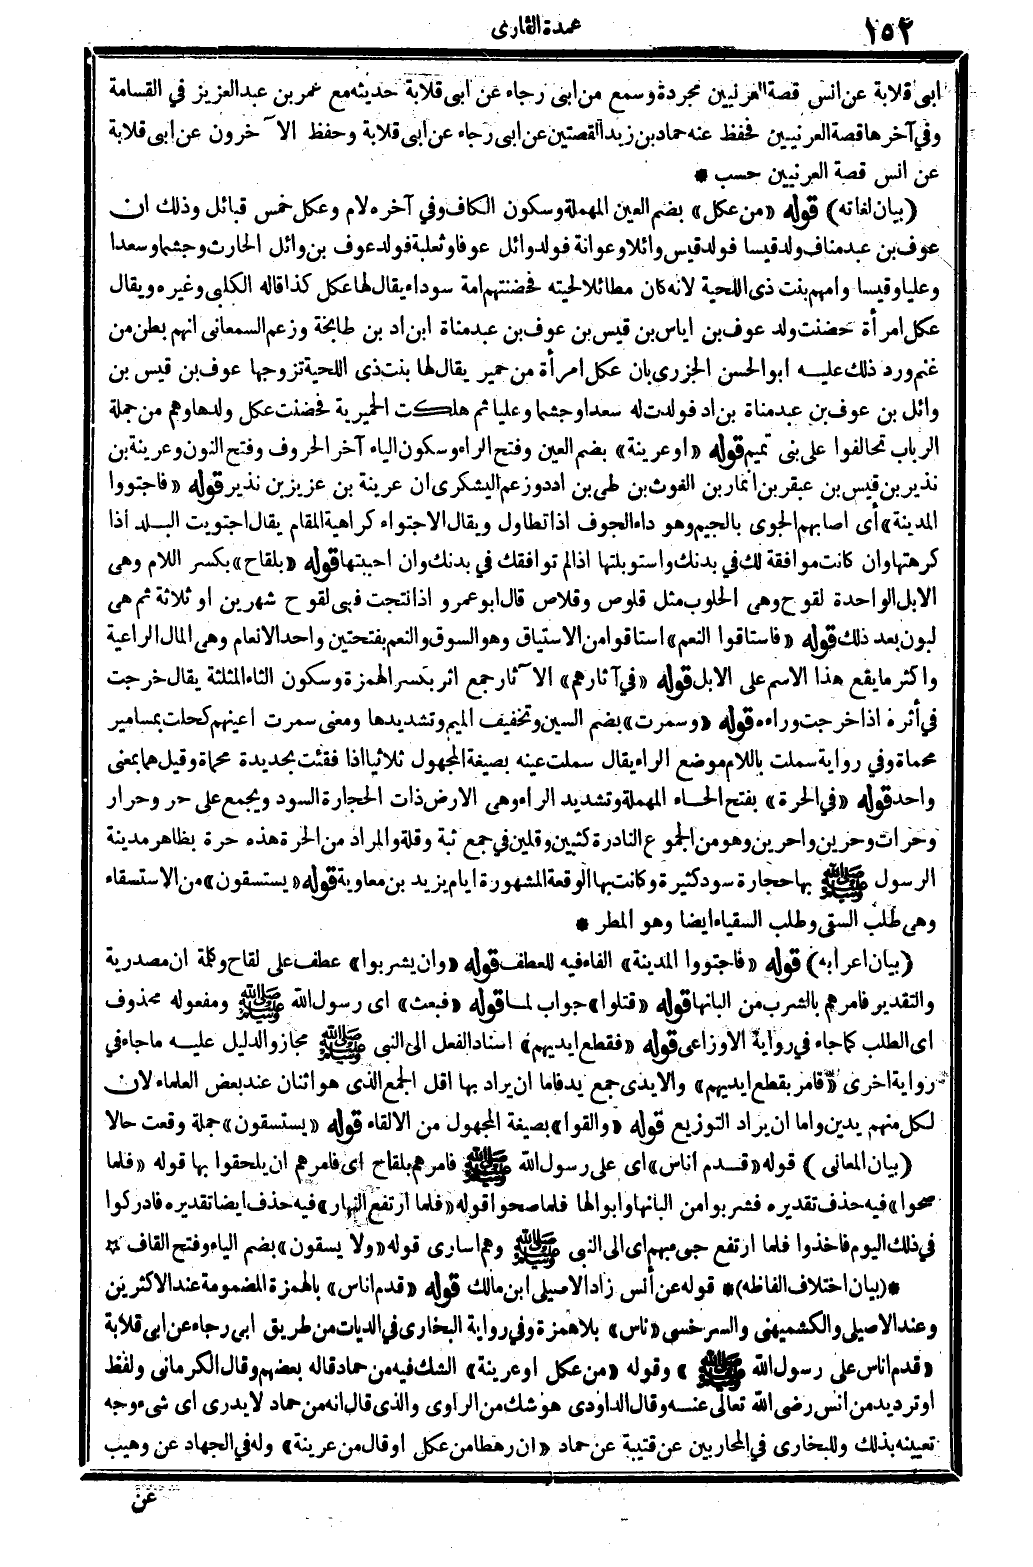 ١٥٢
عمدة القارى
ابى قلابة عن انس قصة العرنيين مجردة وسمع من ابى رجاء عن ابى قلابة حديثه مع عمر بن عبد العزيز في القسامة
وفي آخرها قصة العرنيين فحفظ عنه حماد بن زيد القصتين عن ابى رجاء عن ابى قلابة وحفظ الآخرون عن ابى قلابة
عن انس قصة العرنيين حسب *
(بيان لغاته) قوله «من عكل» بضم العين المهملة وسكون الكاف وفي آخره لام وعكل خمس قبائل وذلك ان
عوف بن عبد مناف ولد قيسا فولد قيس وائلا وعوانة فولد وائل عوفا وثعلبة فولد عوف بن وائل الحارث وجشما وسعدا
وعليا وقيسا وأمهم بنت ذى اللحية لانه كان مطائلا لحيته فحضنتهم امة سوداء يقال لها عكل كذا قاله الكلبى وغيره ويقال
عكل امرأة حضنت ولد عوف بن اياس بن قيس بن عوف بن عبد مناة ابن اد بن طابخة وزعم السمعانى انهم بطن من
غنم ورد ذلك عليه ابو الحسن الجزرى بان عكل امرأة من حمير يقال لها بنت ذى اللحية تزوجها عوف بن قيس بن
وائل بن عوف بن عبد مناة بن اد فولدت له سعدا وجشما وعليا ثم هلكت الحميرية فحضنت عكل ولدها وهم من جملة
الرباب تحالفوا على بنى تميم قوله «او عرينة» بضم العين وفتح الراء وسكون الياء آخر الحروف وفتح النون وعرينة بن
نذير بن قيس بن عبقر بن انمار بن الغوث بن طى بن ادد وزعم اليشكرى ان عرينة بن عزيز بن نذير قوله «فاجتووا
المدينة» أى اصابهم الجوى بالجيم وهو داء الجوف اذا تطاول ويقال الاجتواء كراهية المقام يقال اجتويت البلد اذا
كرهتها وان كانت موافقة لك في بدنك واستوبلتها اذا لم توافقك في بدنك وان احببتها قوله «بلقاح» بكسر اللام وهى
الابل الواحدة لقوح وهى الحلوب مثل قلوص وقلاص قال ابو عمرو اذا نتجت فهى لقوح شهرين او ثلاثة ثم هى
لبون بعد ذلك قوله «فاستاقوا النعم» استاقوا من الاستياق وهو السوق والنعم بفتحتين واحد الانعام وهى المال الراعية
واكثر ما يقع هذا الاسم على الابل قوله «في آثارهم» الآثار جمع اثر بكسر الهمزة وسكون الثاء المثلثة يقال خرجت
في أثره اذا خرجت وراءه قوله «وسمرت» بضم السين وتخفيف الميم وتشديدها ومعنى سمرت اعينهم كحلت بمسامير
محماة وفي رواية سملت باللام موضع الراء يقال سملت عينه بصيغة المجهول ثلاثيا اذا فقئت بحديدة محماة وقيل هما بمعنى
واحد قوله «في الحرة» بفتح الحاء المهملة وتشديد الراء وهى الارض ذات الحجارة السود ويجمع على حر وحرار
وحرات وحرين واحرين وهو من الجموع النادرة كثبين وقلين في جمع ثبة وقلة والمراد من الحرة هذه حرة بظاهر مدينة
الرسول ﷺ بها حجارة سود كثيرة وكانت بها الوقعة المشهورة ايام يزيد بن معاوية قوله «يستسقون» من الاستسقاء
وهى طلب السقى وطلب السقياء ايضا وهو المطر *
(بيان اعرابه) قوله «فاجتووا المدينة» الفاء فيه للعطف قوله «وان يشربوا» عطف على لقاح وكلمة ان مصدرية
والتقدير فامرهم بالشرب من البانها قوله «قتلوا» جواب لما قوله «فبعث» اى رسول الله ﷺ ومفعوله محذوف
اى الطلب كما جاء في رواية الاوزاعى قوله «فقطع ايديهم» اسناد الفعل الى النبى ﷺ مجاز والدليل عليه ما جاء في
رواية اخرى «فامر بقطع ايديهم» والايدى جمع يد فاما ان يراد بها اقل الجمع الذى هو اثنان عند بعض العلماء لان
لكل منهم يدين واما ان يراد التوزيع قوله «والقوا» بصيغة المجهول من الالقاء قوله «يستسقون» جملة وقعت حالا
(بيان المعانى) قوله «قدم اناس» اى على رسول الله ﷺ قوله فامرهم بلقاح اى فامرهم ان يلحقوا بها قوله «فلما
صحوا» فيه حذف تقديره فشربوا من البانها وابوالها فلما صحوا قوله «فلما ارتفع النهار» فيه حذف ايضا تقديره فادركوا
في ذلك اليوم فاخذوا فلما ارتفع جىء بهم اى الى النبى ﷺ وهم اسارى قوله «ولا يسقون» بضم الياء وفتح القاف *
*(بيان اختلاف الفاظه)* قوله عن أنس زاد الاصيلى ابن مالك قوله «قدم اناس» بالهمزة المضمومة عند الاكثرين
وعند الاصيلى والكشميهنى والسرخسى «ناس» بلا همزة وفي رواية البخارى في الديات من طريق ابى رجاء عن ابى قلابة
«قدم اناس على رسول الله ﷺ» وقوله «من عكل او عرينة» الشك فيه من حماد قاله بعضهم وقال الكرمانى ولفظ
او ترديد من انس رضى الله تعالى عنه وقال الداودى هو شك من الراوى والذى قال انه من حماد لا يدرى اى شىء وجه
تعيينه بذلك وللبخارى في المحاربين عن قتيبة عن حماد «ان رهطا من عكل او قال من عرينة» وله في الجهاد عن وهيب
عن